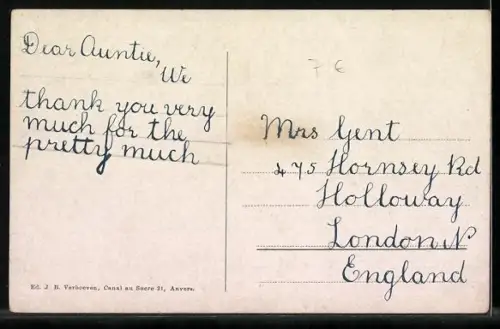 Dear Auntie,
We
thank you very
much for the
pretty much
7 €
Mrs Gent
475 Hornsey Rd
Holloway
London N
England
Ed. J. B. Verhoeven, Canal au Sucre 21, Anvers.